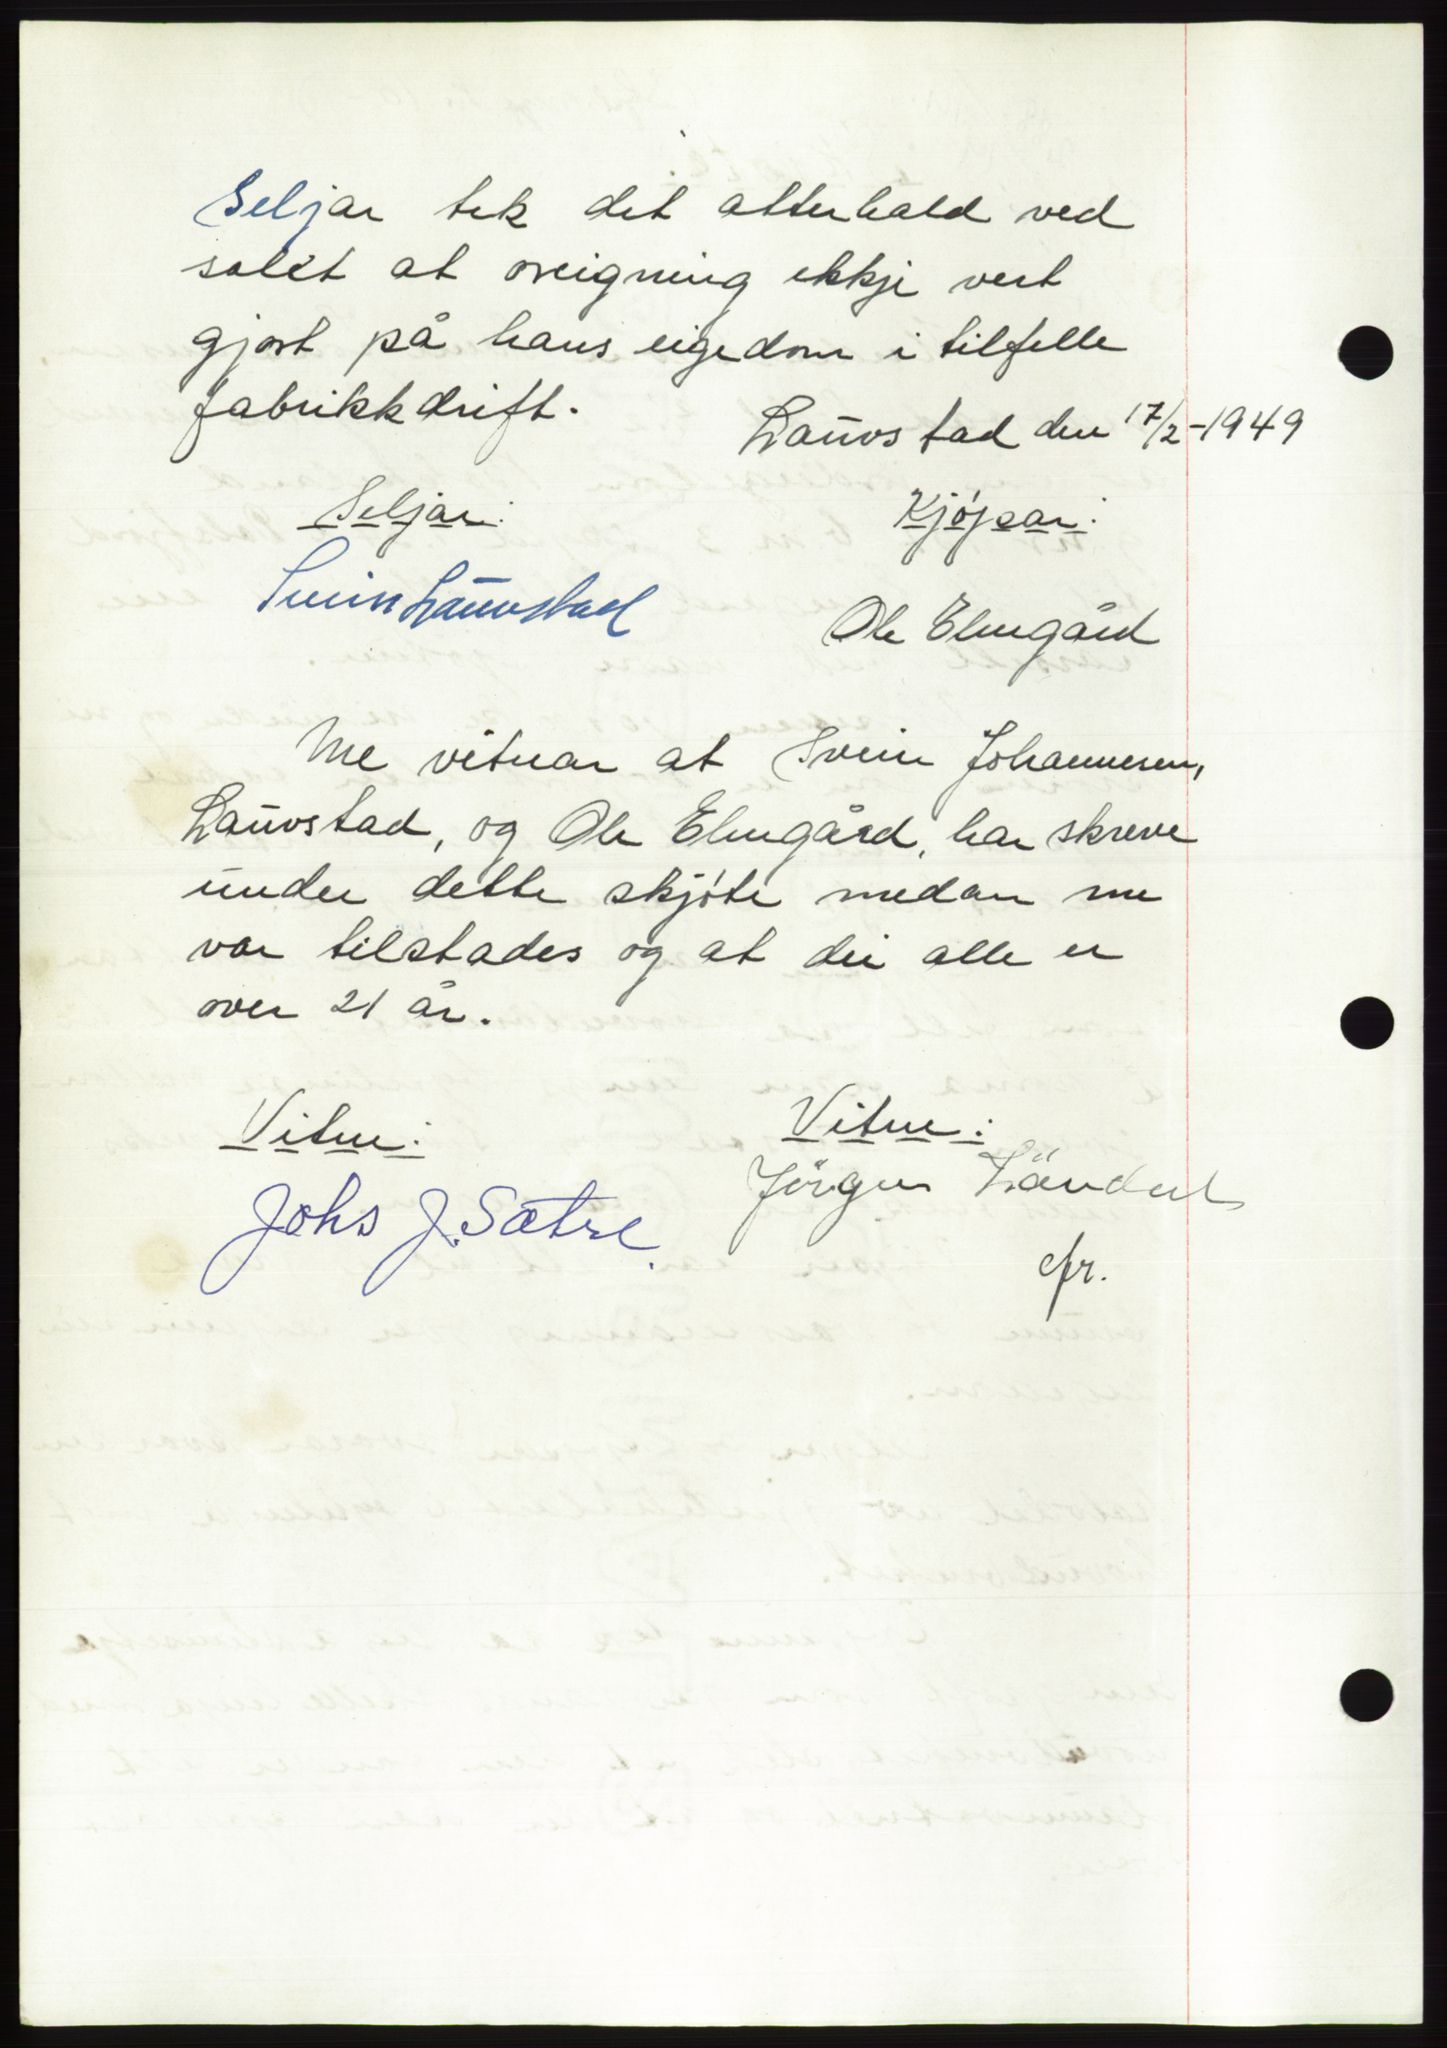 Seljar tek det atterhald ved
salet at oreigning ekkje vert
gjort på hans eigedom i tilfelle
fabrikkdrift.
Lauvstad den 17/2-1949
Seljar: Kjøpar:
Svein Lauvstad
Ole Elmgård
Me vitnar at Svein Johannesen,
Lauvstad, og Ole Elmgård, har skreve
under dette skjøte medan me
var tilstades og at dei alle er
over 21 år.
Vitne: Vitne:
Johs J. Sætre. Jørgen
efr.